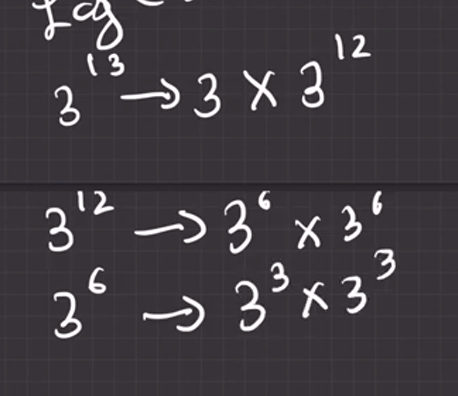 Log
3¹³ → 3 × 3¹²
3¹² → 3⁶ × 3⁶
3⁶ → 3³ × 3³